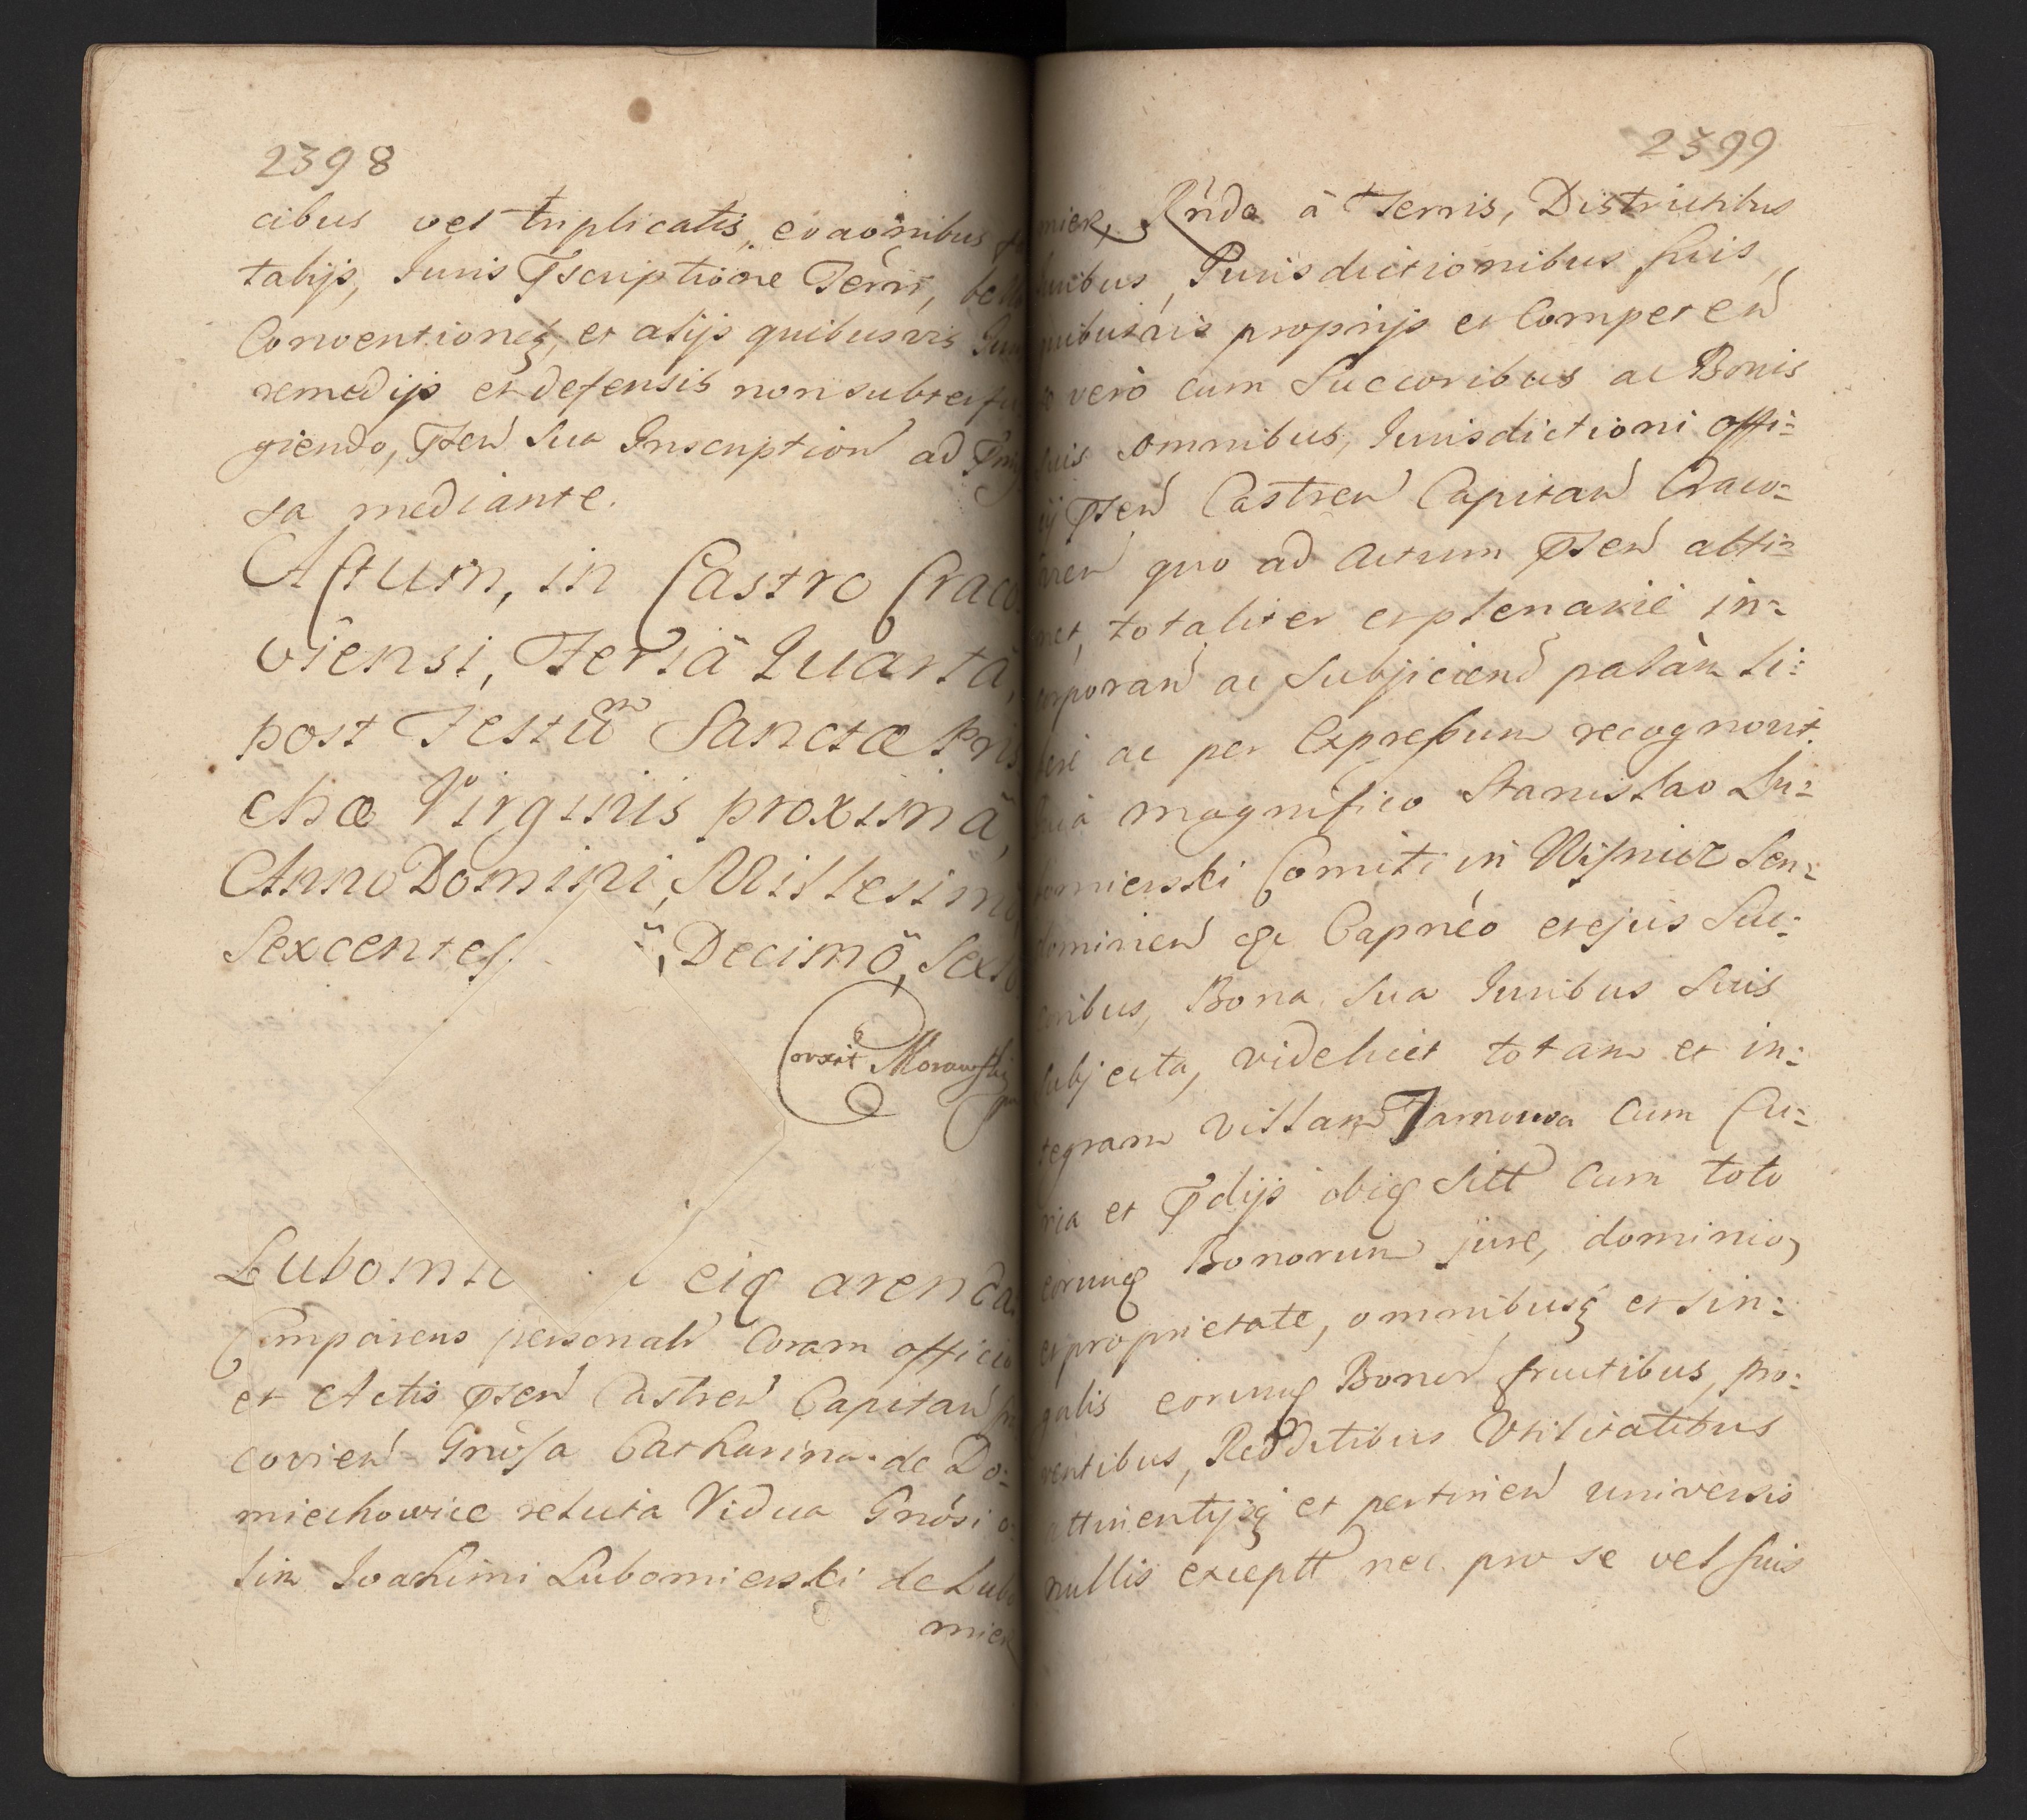 2398
cibus vel triplicatis, evaõnibus
talijs, Iuris Pscriptione Terri,
Conventionéq, et alijs quibusvis
remedijs et defensis non subterfu
giendo, Psen sua Inscription ad
sa mediante.
Actum, in Castro Craco
viensi, Feria Quarta,
post Festū Sanctæ Pris
chæ Virginis proxima,
Anno Domini, Millesimo
Sexcentes Decimo, Sexto
Corexit Morawski
Lubomi eiq arenda
Comparens personalr Coram officio
et Actis Psen Castren Capitan
covien Gnõsa Catharina de Do:
miechowice relicta Vidua Gnõsi o
lim Ioachimi Lubomierski de Lubo
mier
2399
mier, Rńda à Terris, Districtibus
Iurisdictionibus suis
proprijs et Competen
vero cum Succoribus ac Bonis
suis omnibus, Iurisdictioni offi:
ij Psen Castren Capitan Craco:
vien quo ad Actum Psen atti:
net, totaliter et plenarié in:
corporan ac subjiciend palàm li:
beré ac per Expressum recognovit.
Quia Magnifico Stanislao Lu:
bomierski Comiti in Wiśnicz Sen:
domirien &c Capnéo et ejus Suc:
oribus, Bona sua Iuribus suis
subjecta, videlicet totam et in:
tegram Villam Tarnowa cum Cu:
ria et Pdijs ibiq sitt cum toto
eorumq Bonorum jure, dominio,
et proprietate, omnibusq et sin:
gulis eorumq Bonor fructibus, pro:
ventibus, Redditibus Utilitatibus
attinentijsq et pertinen universis
nullis exceptt nec pro se vel suis